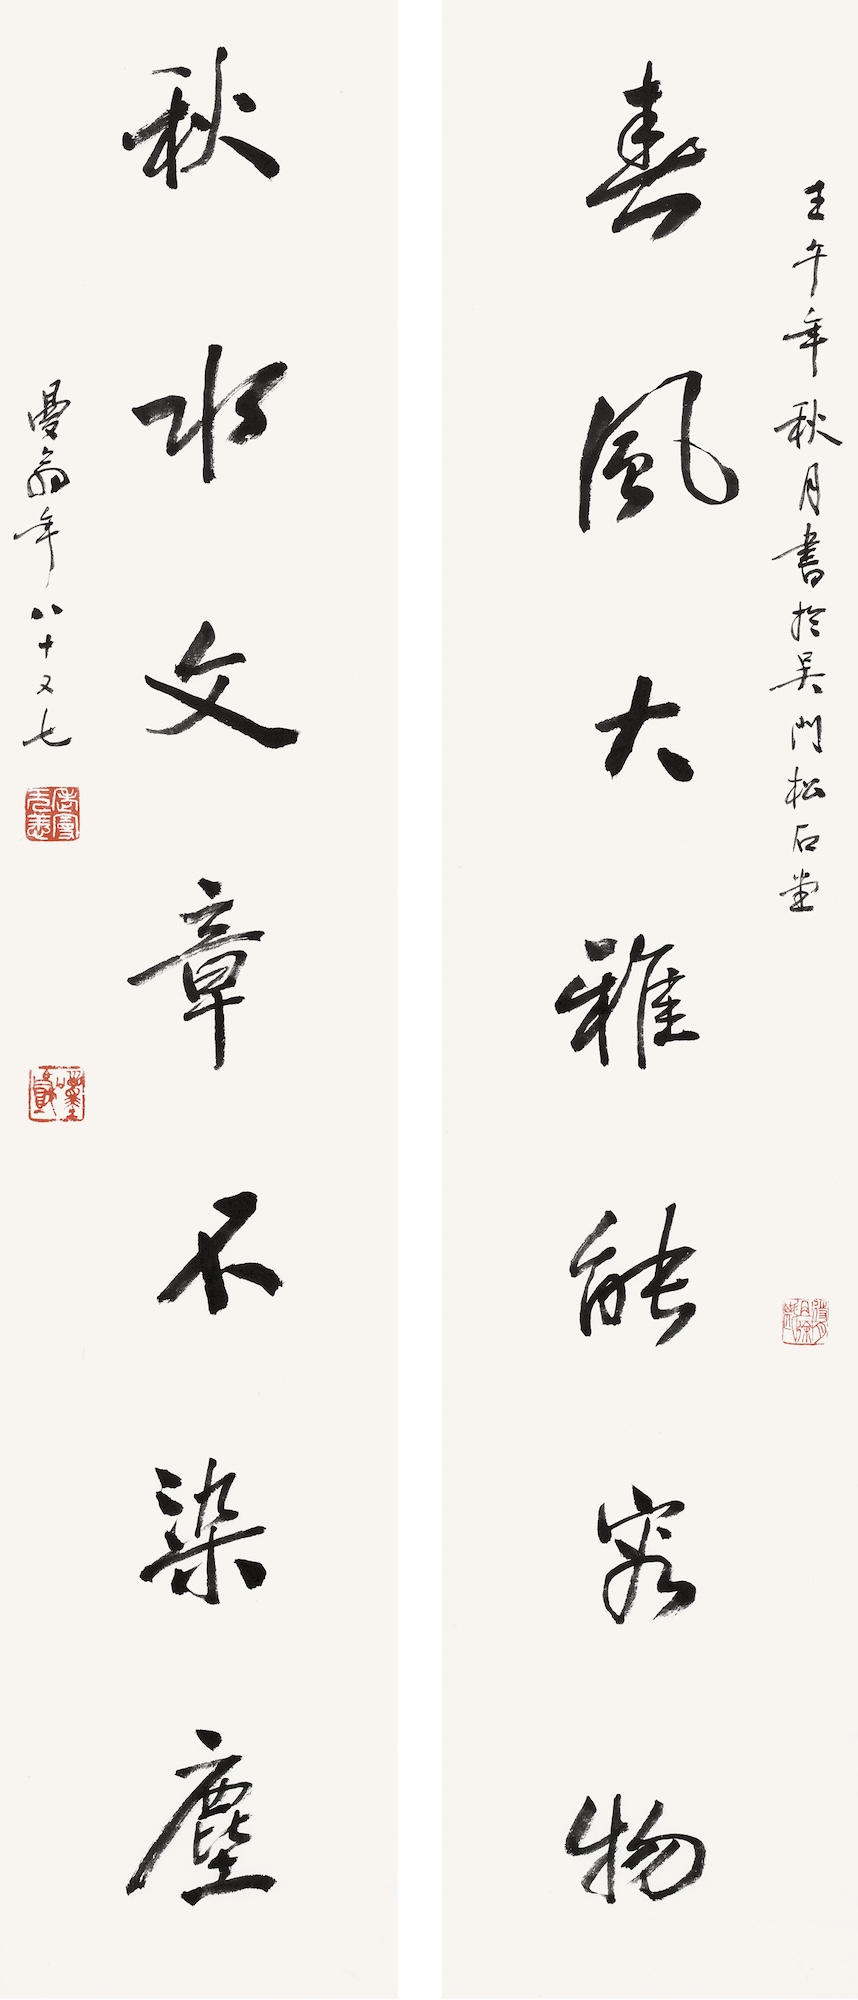 壬午年秋月書於吴門松石堂
春風大雅能容物
秋水文章不染塵
曼翁年八十又七